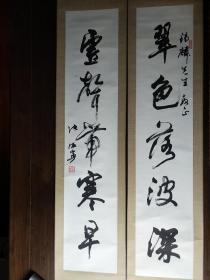 翠色落波深
先生
虛聲帶寒早